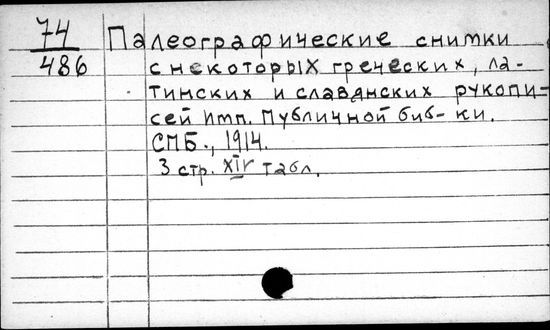 74
486
Палеографические снимки
с некоторых греческих, ла-
тинских и славянских рукопи-
сей Имп. Публичной биб-ки.
СПБ., 1914.
3 стр. XIV табл.